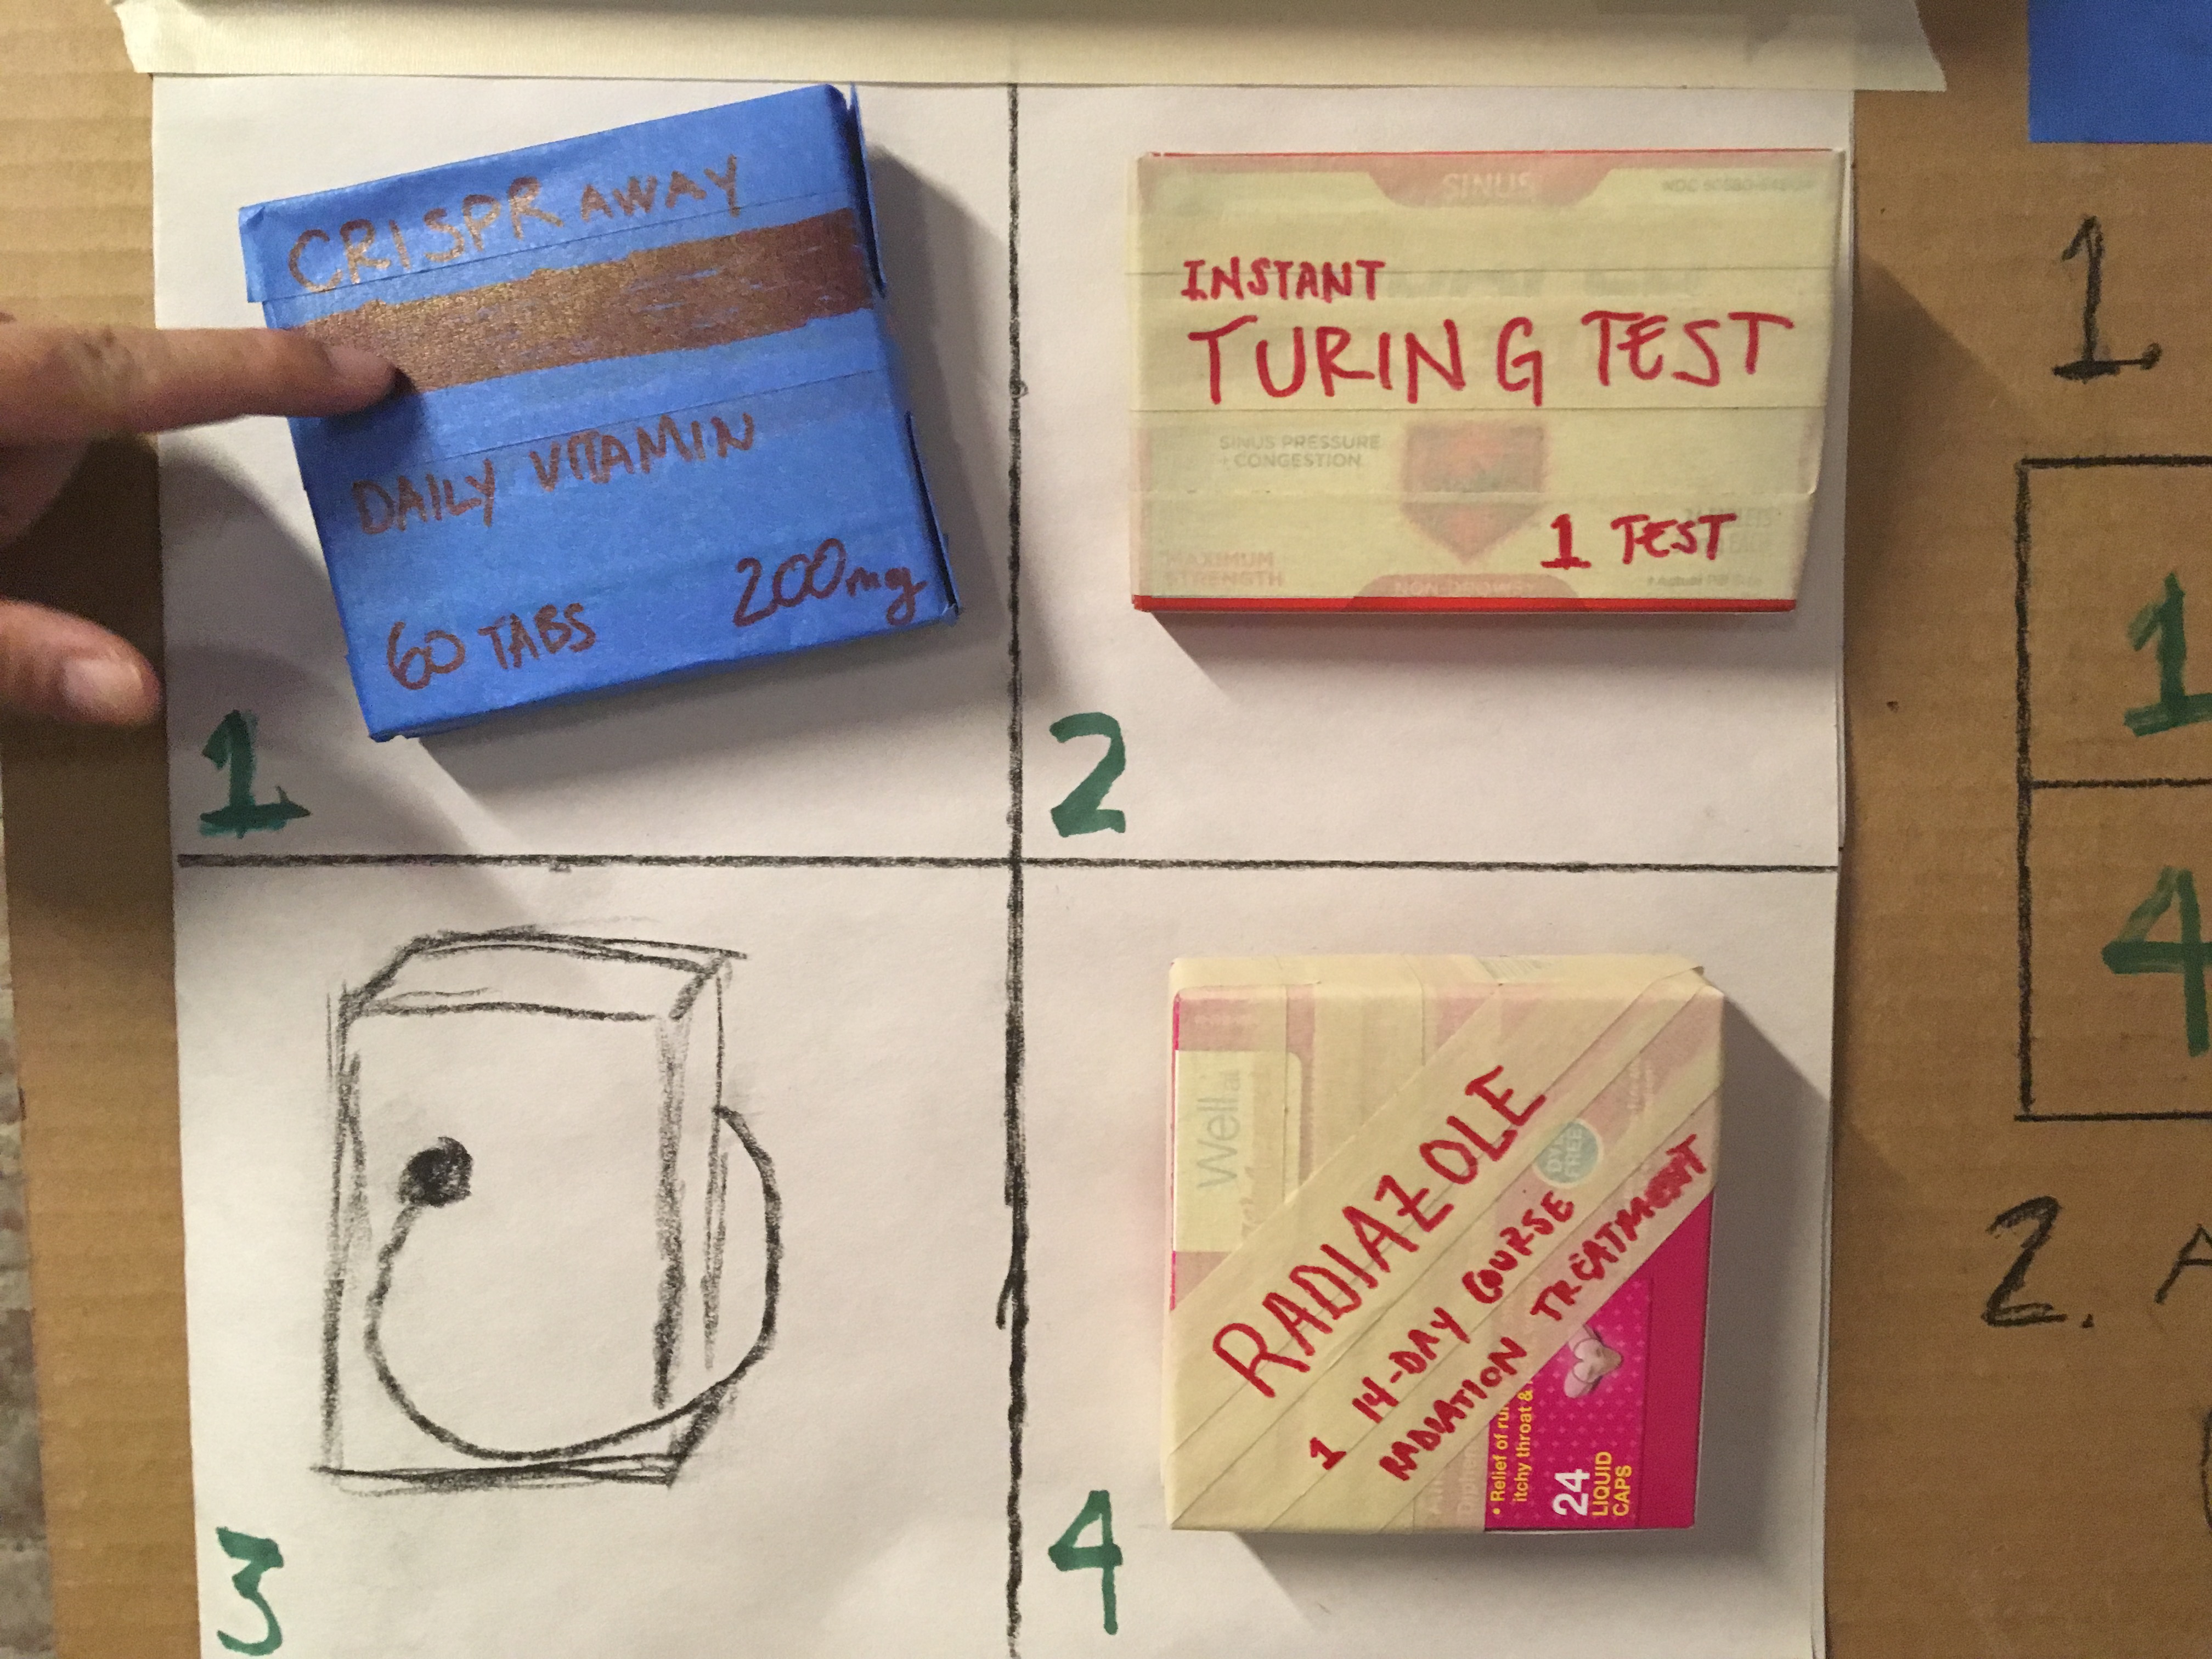 CRISPR AWAY
DAILY VITAMIN
60 TABS 200mg
1
SINUS
INSTANT
TURING TEST
SINUS PRESSURE
+ CONGESTION
1 TEST
MAXIMUM
STRENGTH
2
3
Well
RADIAZOLE
1 14-DAY COURSE
RADIATION TREATMENT
DYE
FREE
• Relief of ru
itchy throat &
24
LIQUID
CAPS
4
1.
1
4
2. A